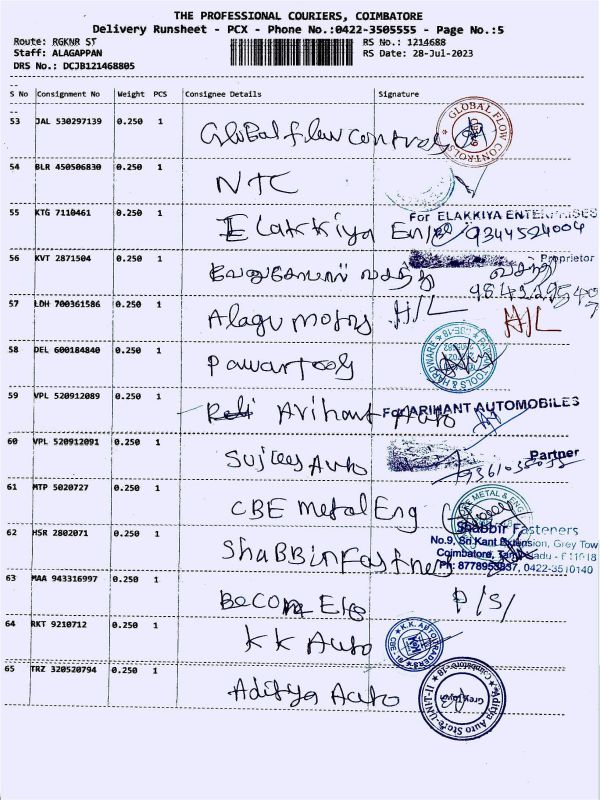 THE PROFESSIONAL COURIERS, COIMBATORE
Delivery Runsheet - PCX - Phone No.:0422-3505555 - Page No.:5
Route: RGKNR ST RS No.: 1214688
Staff: ALAGAPPAN RS Date: 28-Jul-2023
DRS No.: DCJB121468805
S No Consignment No Weight PCS Consignee Details Signature
53 JAL 530297139 0.250 1 Global flow controls GLOBAL FLOW CONTROLS
54 BLR 450506830 0.250 1 NTC
55 KTG 7110461 0.250 1 Elakkiya Ent For ELAKKIYA ENTERPRISES 9344524004
56 KVT 2871504 0.250 1 Proprietor
57 LDH 700361586 0.250 1 Alagu motors H/L H/L
58 DEL 600184840 0.250 1 Pawartools TOOLS & HARDWARE CBE-18
59 VPL 520912089 0.250 1 Arihant Auto For ARIHANT AUTOMOBILES
60 VPL 520912091 0.250 1 Auto Partner
61 MTP 5020727 0.250 1 CBE metal Eng METAL & ENG
62 HSR 2802071 0.250 1 Shabbir Fasteners
No.9, Sri Kant Extension, Grey Tow
Coimbatore, Tamil Nadu
Ph: 0422-3510140
63 MAA 943316997 0.250 1 P/S/
64 RKT 9210712 0.250 1 KK Auto K.K. AUTO TRADERS CBE-18
65 TRZ 320520794 0.250 1 Aditya Auto Aditya Auto Coimbatore-18